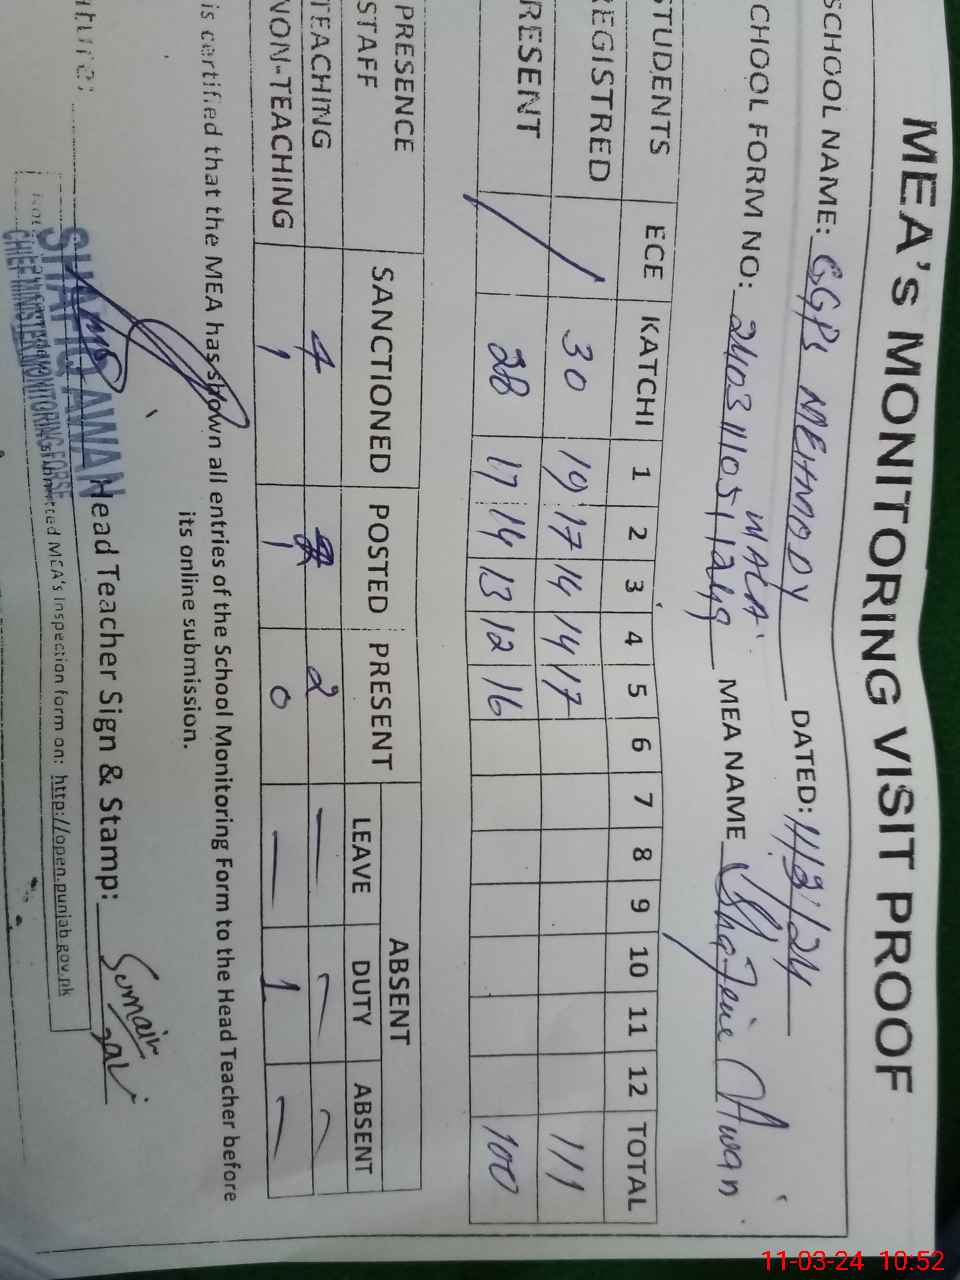 MEA'S MONITORING VISIT PROOF
SCHOOL NAME: GGPS MEHMODY DATED: 11/3/24
CHOOL FORM NO: MEA NAME Awan
STUDENTS ECE KATCHI 1 2 3 4 5 6 7 8 9 10 11 12 TOTAL
REGISTRED 30 19 17 14 14 17 111
RESENT 28 17 14 13 12 16 100
PRESENCE
STAFF SANCTIONED POSTED PRESENT ABSENT
LEAVE DUTY ABSENT
TEACHING 4 2 — — —
NON-TEACHING 1 1 0 — 1 —
is certified that the MEA has shown all entries of the School Monitoring Form to the Head Teacher before
its online submission.
ature: Head Teacher Sign & Stamp:
SHAFIQ AWAN
CHIEF MINISTER MONITORING FORSE
MEA's Inspection form on: http://open.punjab.gov.pk
11-03-24 10:52